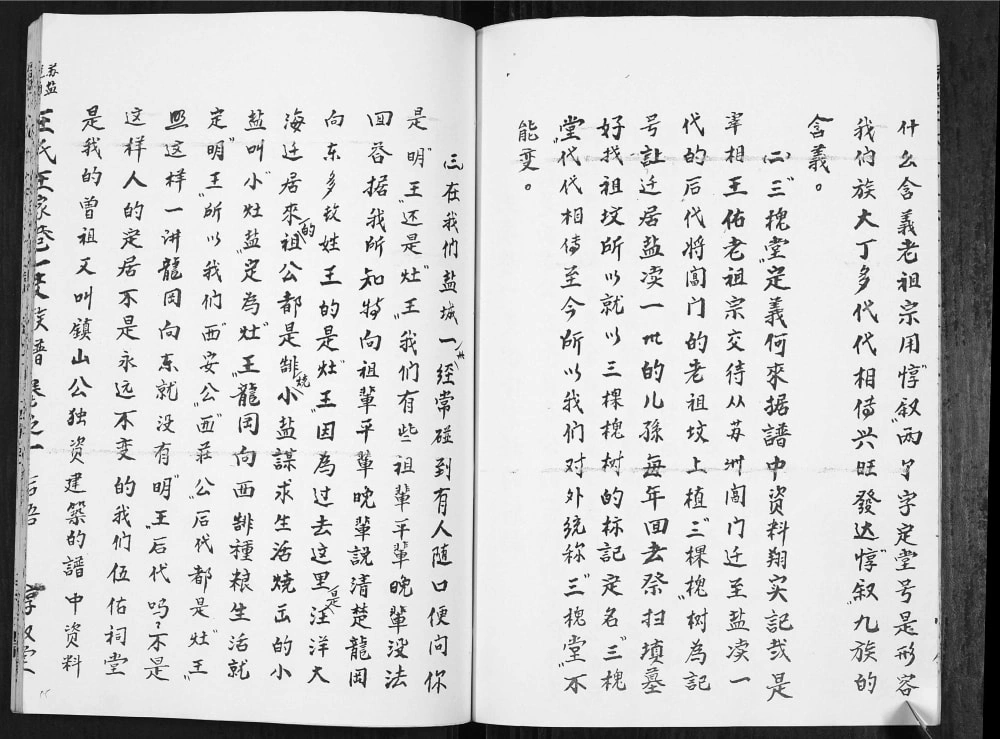 什么含義老祖宗用“惇”叙“两个字定堂号是形容
我们族大丁多代代相傳兴旺發达“惇”叙“九族的
含義。
㈡“三槐堂”定義何來据譜中資料翔实記載是
宰相王佑老祖宗交待从苏州阊门迁至盐渎一
代的后代将阊门的老祖坟上植“三”棵槐树為記
号让迁居盐渎一世的儿孫每年回去祭扫墳墓
好找祖坟所以就以三棵槐树的标記定名“三槐
堂”代代相傳至今所以我们对外統称“三槐堂”不
能变。
㈢在我们盐城一经常碰到有人随口便问你
是“明”王“还是“灶”王“我们有些祖輩平輩晚輩没法
回答据我所知特向祖輩平輩晚輩說清楚龍岡
向东多数姓王的是“灶”王“因為过去这里是汪洋大
海迁居來的祖公都是俳烧小盐謀求生活燒出的小
盐叫“小”灶“盐”定為“灶”王“龍岡向西俳種粮生活就
定“明”王“所以我们“西”安公“西”莊“公”后代都是“灶”王
照这样一讲龍岡向东就没有“明”王“后代吗？不是
这样人的定居不是永远不变的我们伍佑祠堂
是我的曾祖又叫鎮山公独资建築的譜中资料
苏盐
王氏王家巷一支族譜卷之一 后语 惇叙堂